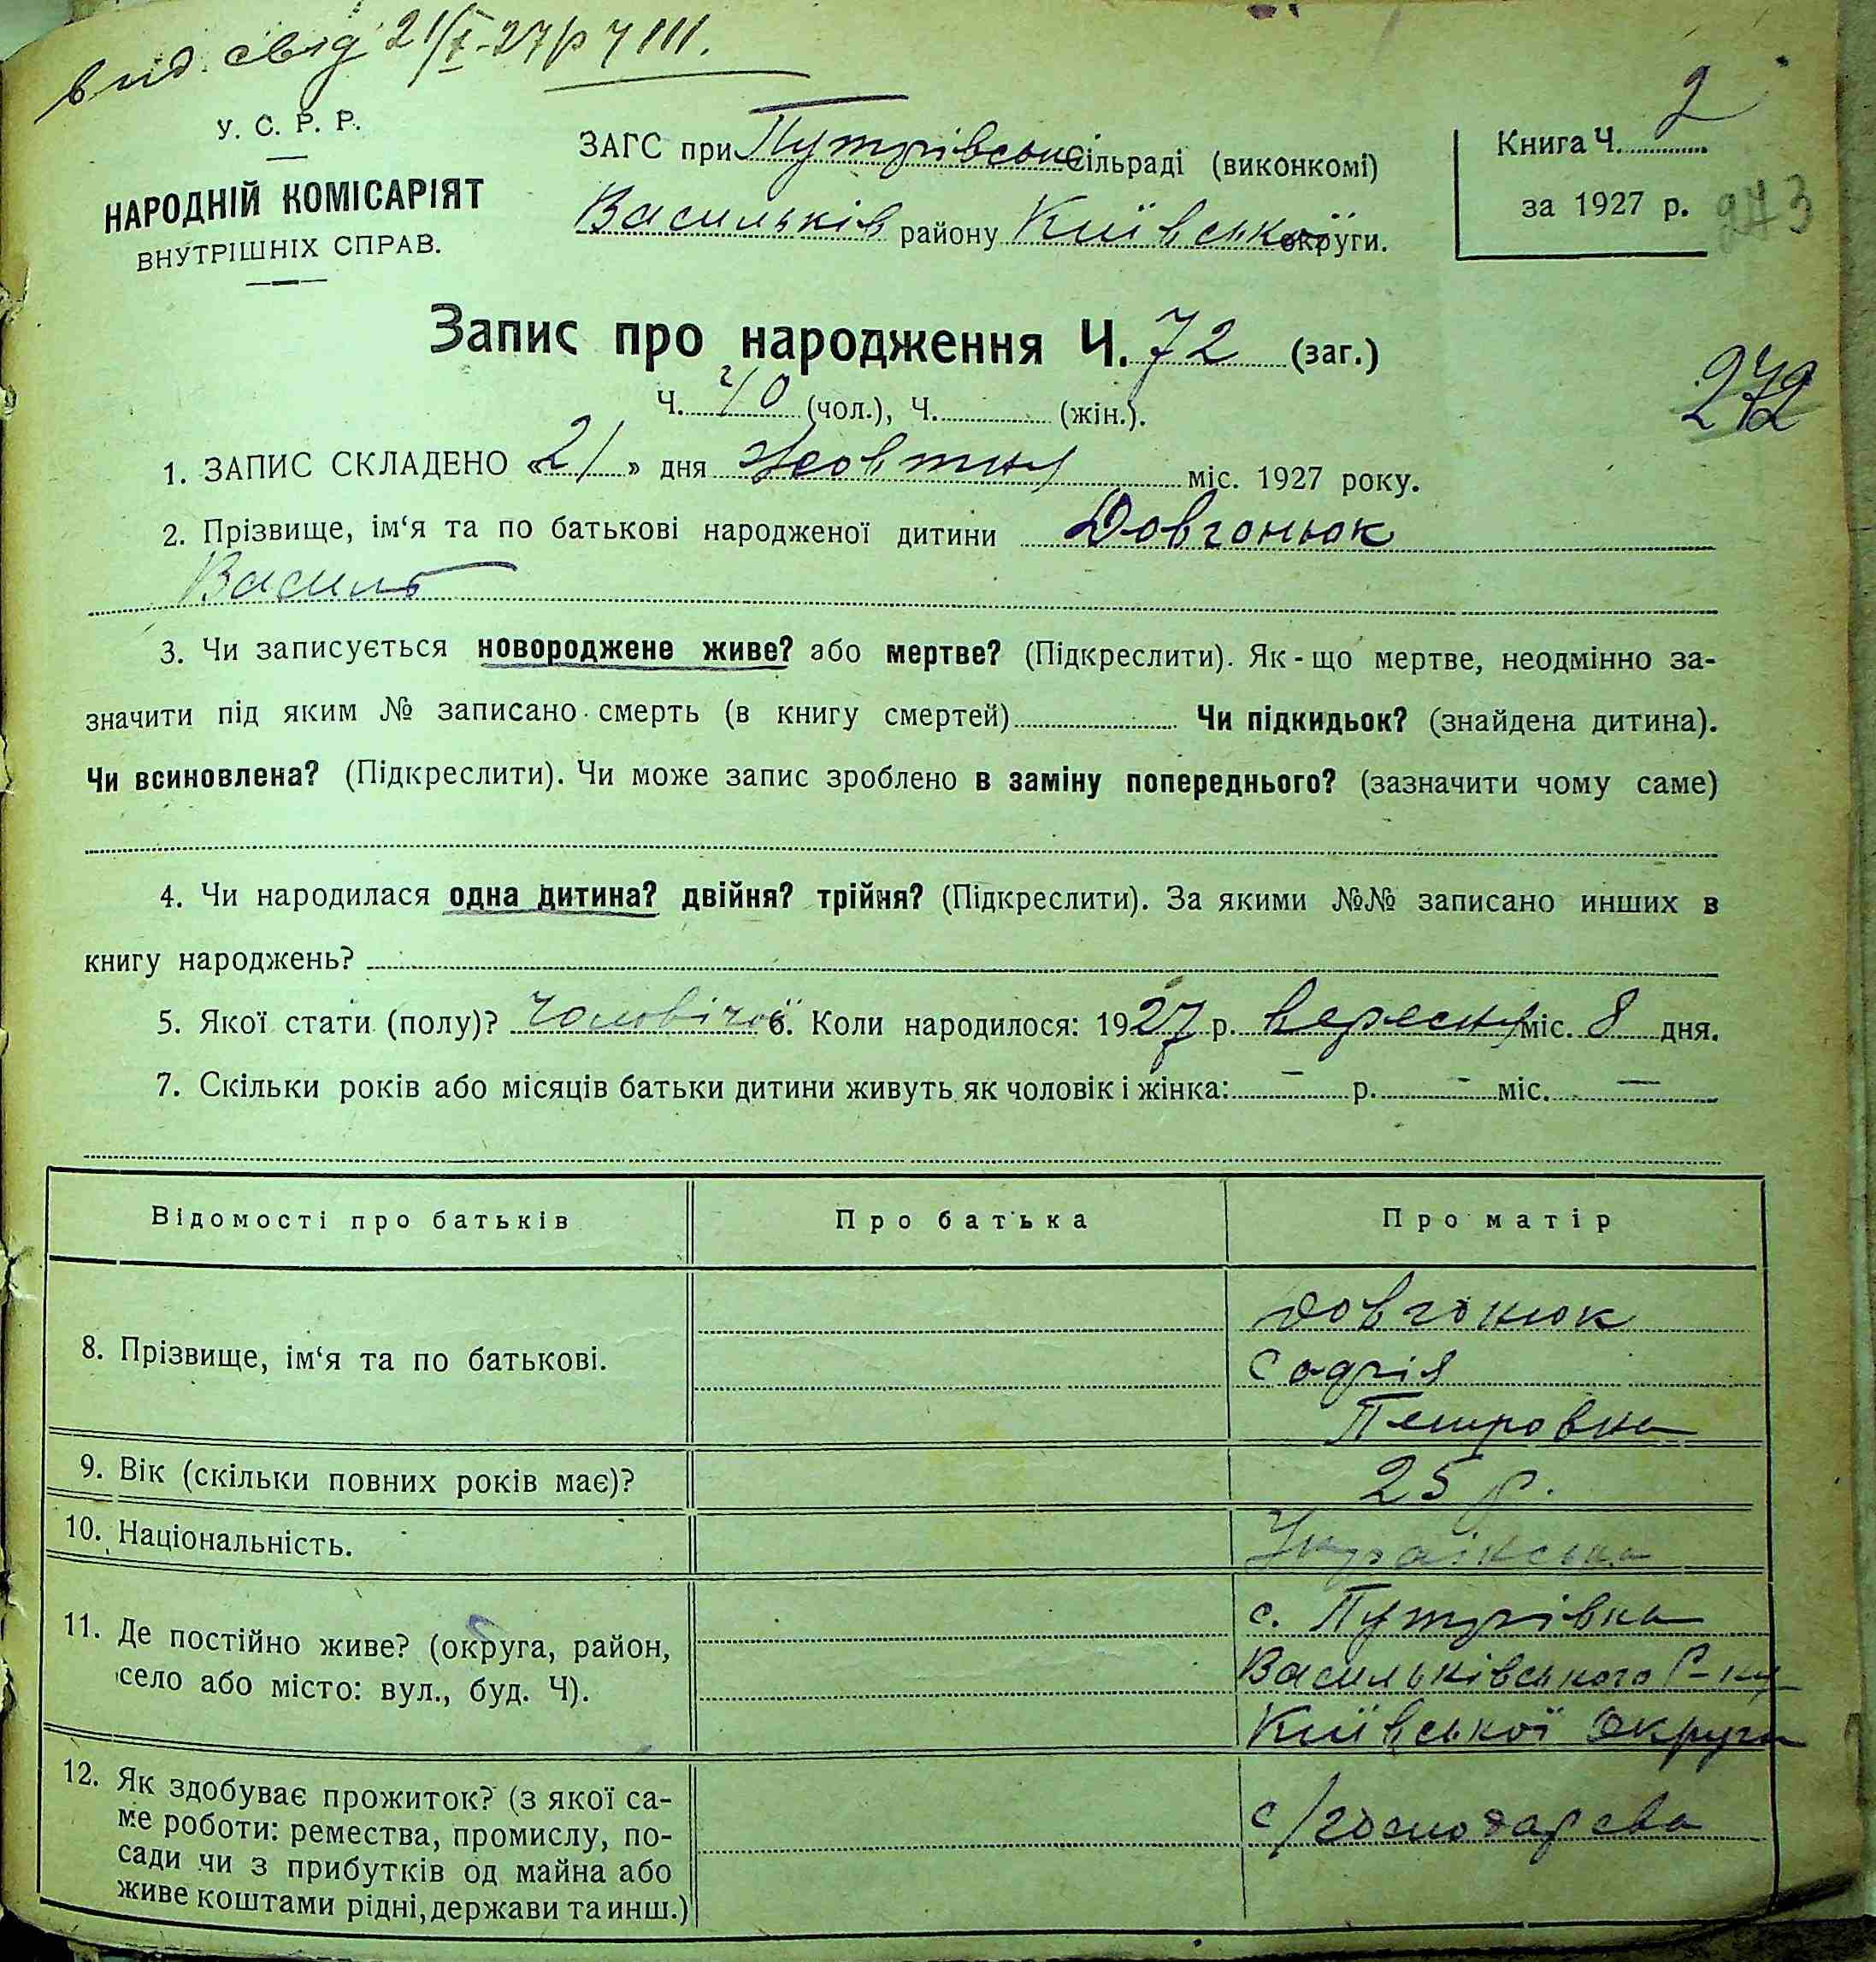 вид. свід 21/X-27р Ч 111.
У. С. Р. Р.
НАРОДНІЙ КОМІСАРІЯТ
ВНУТРІШНІХ СПРАВ.
ЗАГС при Путрівськ сільраді (виконкомі)
Васильків району Київської округи.
Книга Ч. 2
за 1927 р.
273
Запис про народження Ч. 72 (заг.)
272
Ч. 40 (чол.), Ч. (жін.).
1. ЗАПИС СКЛАДЕНО «21» дня Жовтня міс. 1927 року.
2. Прізвище, ім‘я та по батькові народженої дитини Довгонюк
Василь
3. Чи записується новороджене живе? або мертве? (Підкреслити). Як-що мертве, неодмінно за-
значити під яким № записано смерть (в книгу смертей) Чи підкидьок? (знайдена дитина).
Чи всиновлена? (Підкреслити). Чи може запис зроблено в заміну попереднього? (зазначити чому саме)
4. Чи народилася одна дитина? двійня? трійня? (Підкреслити). За якими №№ записано инших в
книгу народжень?
5. Якої стати (полу)? Чоловічої 6. Коли народилося: 1927 р. вересня міс. 8 дня.
7. Скільки років або місяців батьки дитини живуть як чоловік і жінка: — р. — міс. —
Відомості про батьків Про батька Про матір
8. Прізвище, ім‘я та по батькові.
Довгонюк
Софія
Петровна
9. Вік (скільки повних років має)? 25 р.
10. Національність. Українська
11. Де постійно живе? (округа, район,
село або місто: вул., буд. Ч).
с. Путрівка
Васильківського Р-ну
Київської Округи
12. Як здобуває прожиток? (з якої са-
ме роботи: ремества, промислу, по-
сади чи з прибутків од майна або
живе коштами рідні, держави та инш.)
с/господарсва